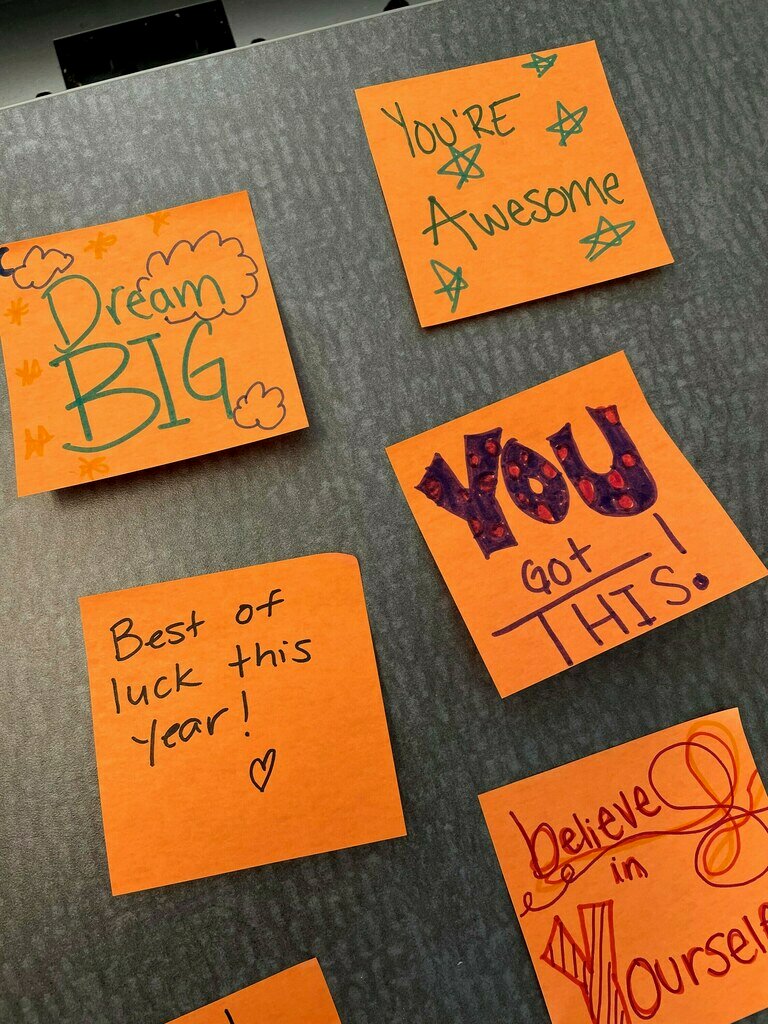 You're
Awesome
Dream
BIG
YOU
Got
THIS!
Best of
luck this
year!
believe
in
Yourself